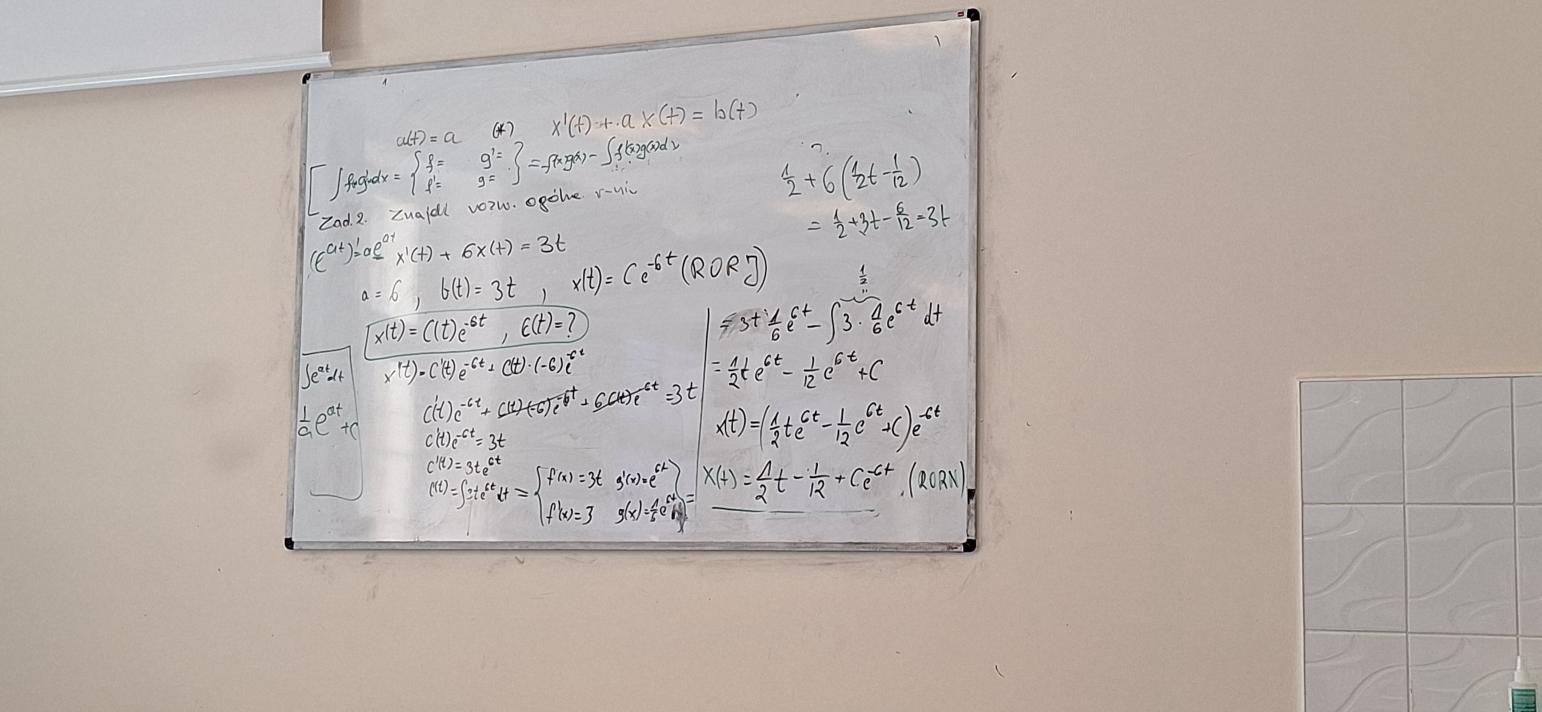 a(t) = a (*) x'(t) + a x(t) = b(t)
[ ∫ f·g' dx = { f= g'= f'= g= } = f(x)g(x) - ∫ f'(x)g(x)dx
Zad. 2. Znajdź rozw. ogólne r-nia
(e^{at})' = a e^{at} x'(t) + 6x(t) = 3t
a = 6 , b(t) = 3t , x(t) = C e^{-6t} (RORJ)
x(t) = C(t) e^{-6t} , C(t) = ?
x'(t) = C'(t) e^{-6t} + C(t)·(-6) e^{-6t}
C'(t) e^{-6t} + C(t)·(-6) e^{-6t} + 6 C(t) e^{-6t} = 3t
C'(t) e^{-6t} = 3t
C'(t) = 3t e^{6t}
C(t) = ∫ 3t e^{6t} dt = { f(x) = 3t g'(x) = e^{6t}
f'(x) = 3 g(x) = 1/6 e^{6t} } =
∫ e^{at} dt
1/a e^{at} + C
1/2 + 6 (1/2 t - 1/12)
= 1/2 + 3t - 6/12 = 3t
1/2
= 3t · 1/6 e^{6t} - ∫ 3 · 1/6 e^{6t} dt
= 1/2 t e^{6t} - 1/12 e^{6t} + C
x(t) = (1/2 t e^{6t} - 1/12 e^{6t} + C) e^{-6t}
x(t) = 1/2 t - 1/12 + C e^{-6t} . (RORN)